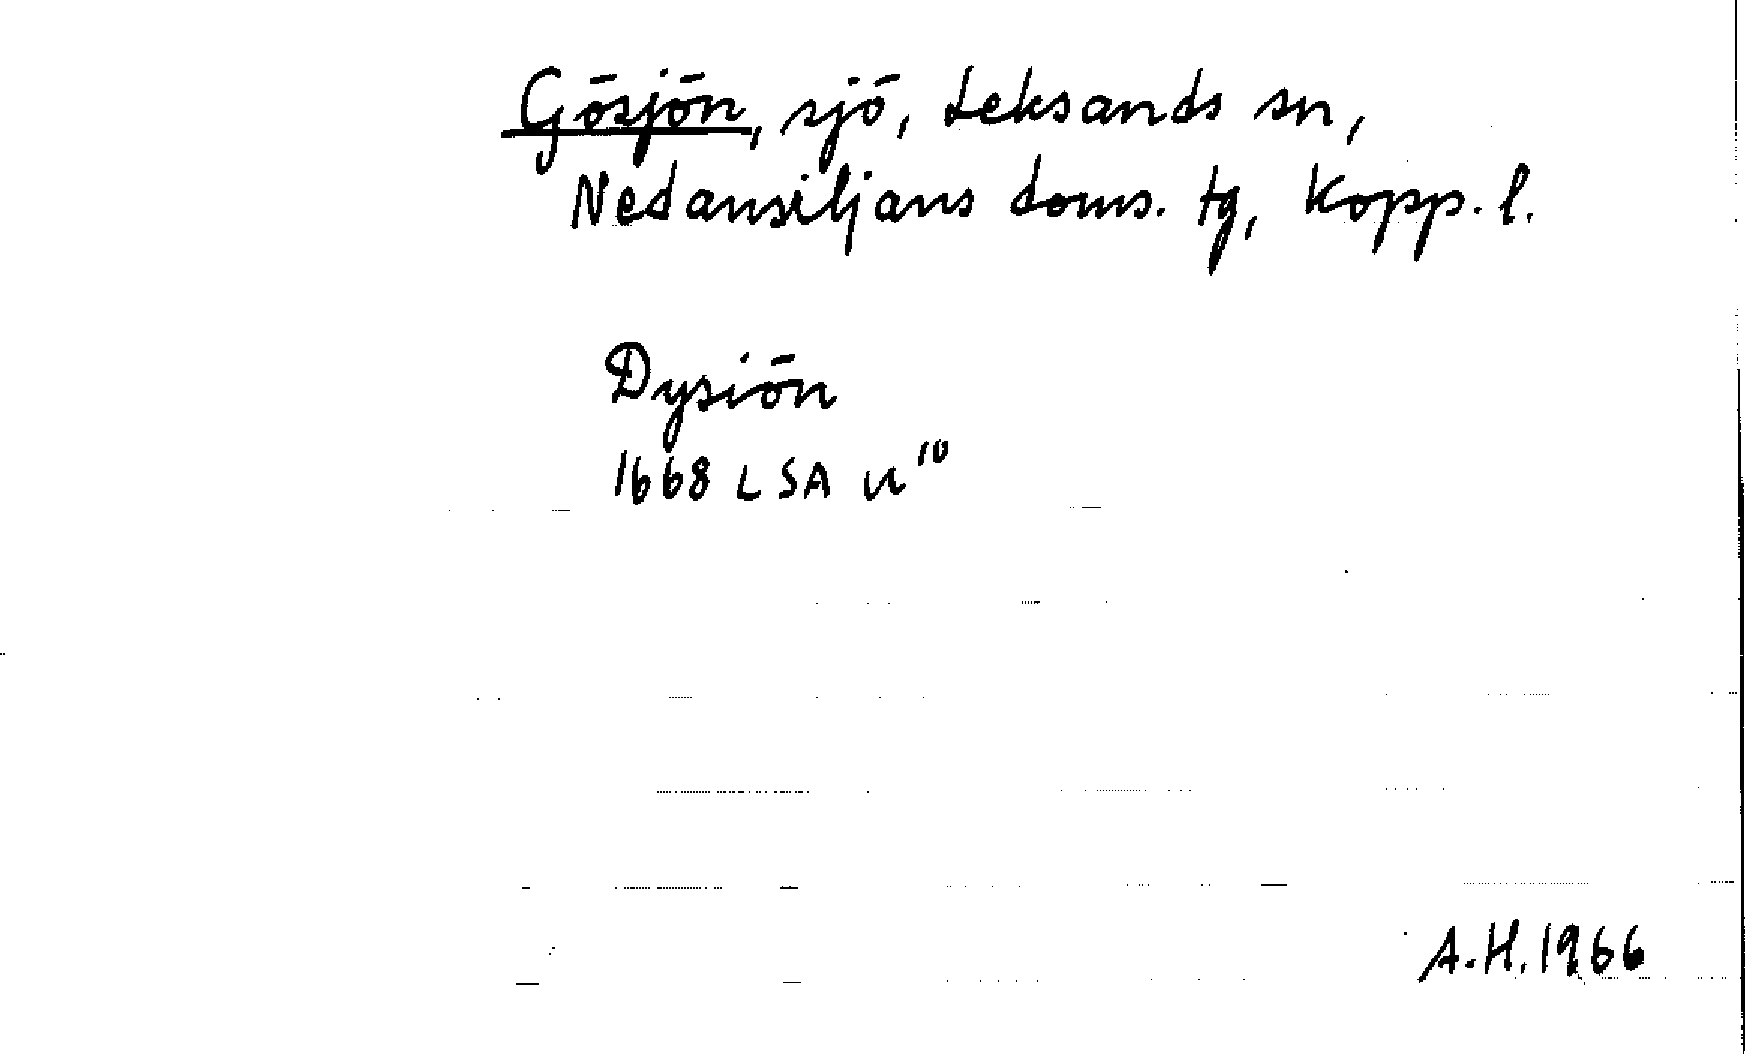 Gösjön, sjö, Leksands sn,
Nedansiljans doms. tg, Kopp. l.
Dysiön
1668 LSA U¹⁰
A.H. 1966